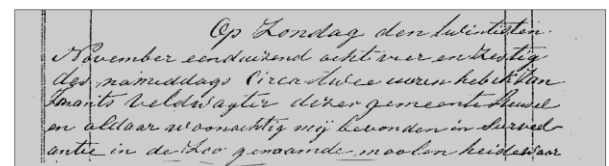 Op Zondag den twintisten
November eenduizend acht vier en zestig
des namiddags Circa twee uuren heb ik Jan
Zwants veldwagter dezer gemeente
en aldaar woonachtig mij bevonden in Surved
antie in de Zoo genaamde moolen heide waar